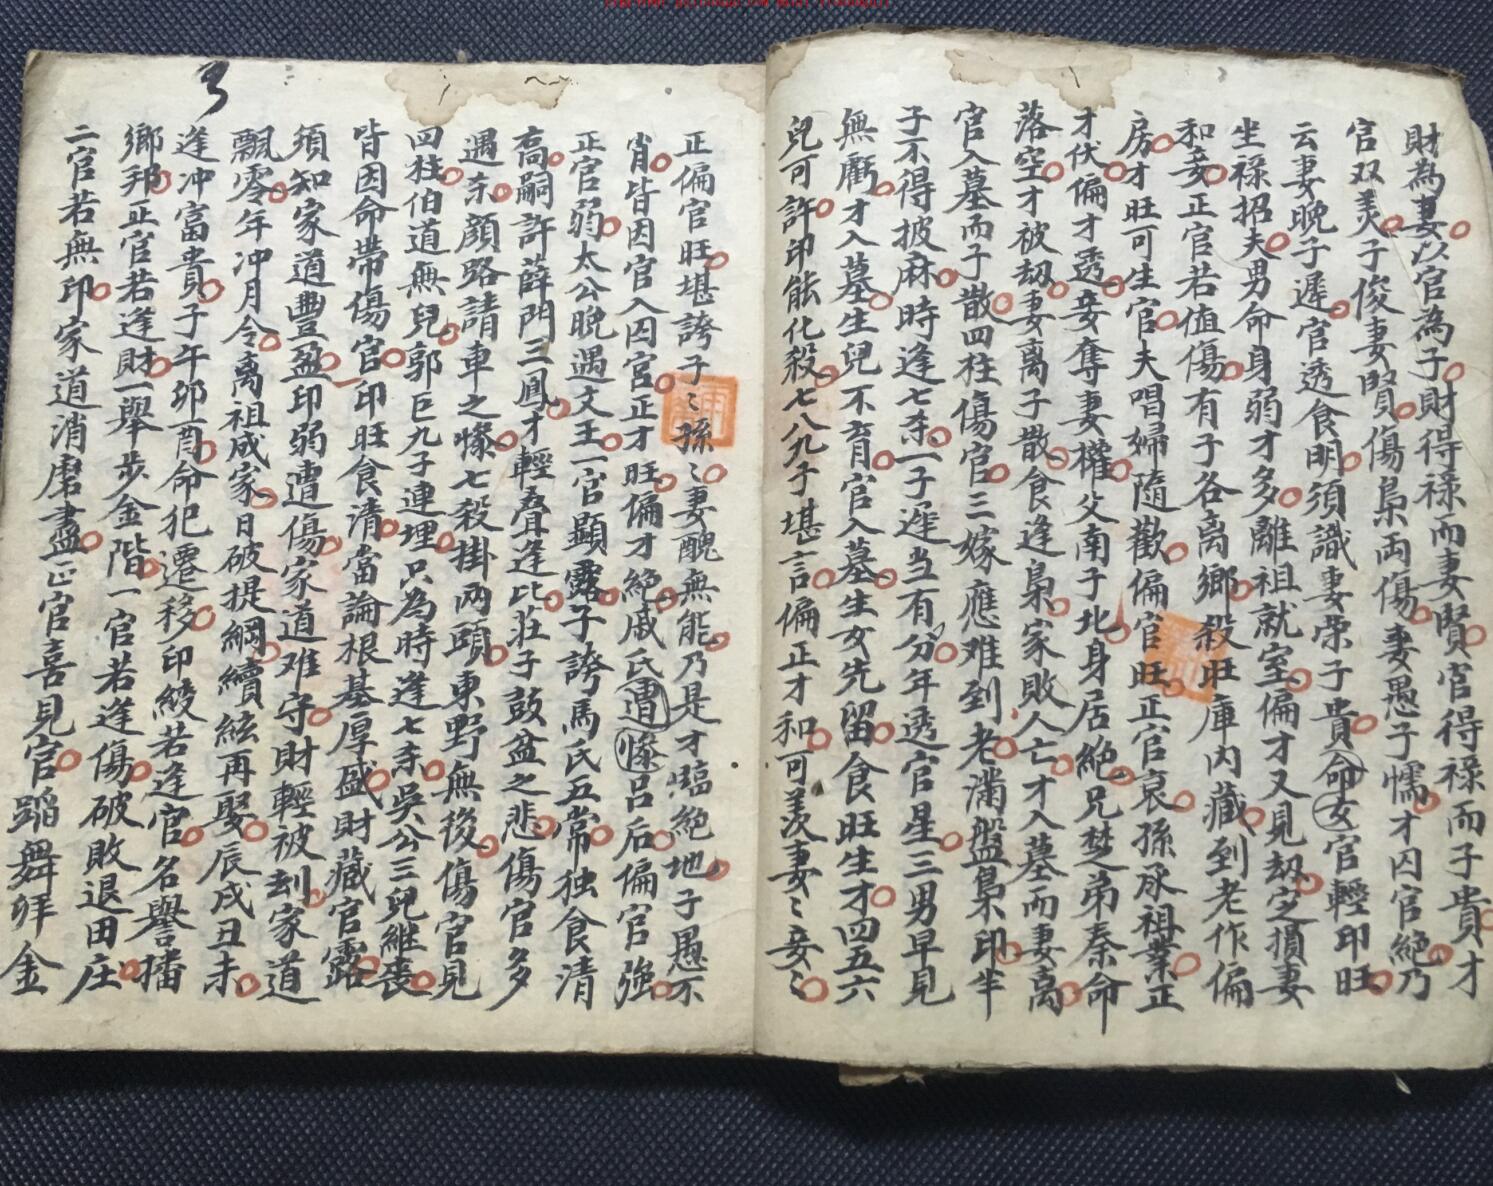 財為妻以官為子財得祿而妻賢官得祿而子貴才
官双美子俊妻賢傷梟両傷妻愚子懦才囚官絕乃
云妻晚子遲官透食明須識妻荣子貴命女官輕印旺
坐祿招夫男命身弱才多離祖就室偏才又見刼定損妻
和妾正官若值傷有子各离鄉殺旺庫内藏到老作偏
房才旺可生官夫唱婦隨歡偏官旺正官衰孫承祖業正
才伏偏才透妾奪妻權父南子北身居絕兄楚弟秦命
落空才被刼妻离子散食逢梟家敗人亡才入墓而妻离
官入墓而子散四柱傷官三嫁應难到老滿盤梟印半
子不得披麻時逢七杀一子遲当有分年透官星三男早見
無虧才入墓生兒不育官入墓生女先留食旺生才四五六
兒可許印能化殺七八九子堪言偏正才和可羡妻〻妾〻
正偏官旺堪誇子〻孫〻妻醜無能乃是才臨絕地子愚不
肖皆因官入囚宮正才旺偏才絕戚氏遭慘呂后偏官強
正官弱太公晚遇文王一官顯露子誇馬氏五常独食清
高嗣許薛門三鳳才輕叠逢比莊子鼓盆之悲傷官多
遇杀顏路請車之慘七殺掛両頭東野無後傷官見
四柱伯道無兒郭巨九子連埋只為時逢七杀吳公三兒継喪
皆因命帶傷官印旺食清當論根基厚盛財藏官露
須知家道豐盈印弱遭傷家道难守財輕被刦家道
飄零年冲月令离祖成家日破提綱續絃再娶辰戌丑未
逢冲富貴子午卯酉命犯遷移印綬若逢官名譽播
鄉邦正官若逢財一舉步金階一官若逢傷破敗退田庄
二官若無印家道消磨盡正官喜見官蹈舞拜金